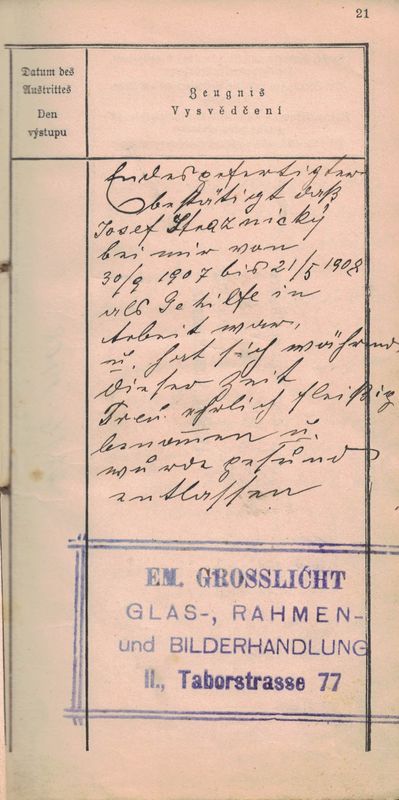 21
Datum des
Austrittes
Den
výstupu
Zeugnis
Vysvědčení
Endesgefertigter
bestätigt daß
Josef Straznický
bei mir von
30/9 1907 bis 21/5 1908
als Gehilfe in
Arbeit war,
u. hat sich während
dieser Zeit
Treu ehrlich fleißig
benommen u.
wurde gesund
entlassen
EM. GROSSLICHT
GLAS-, RAHMEN-
und BILDERHANDLUNG
II., Taborstrasse 77